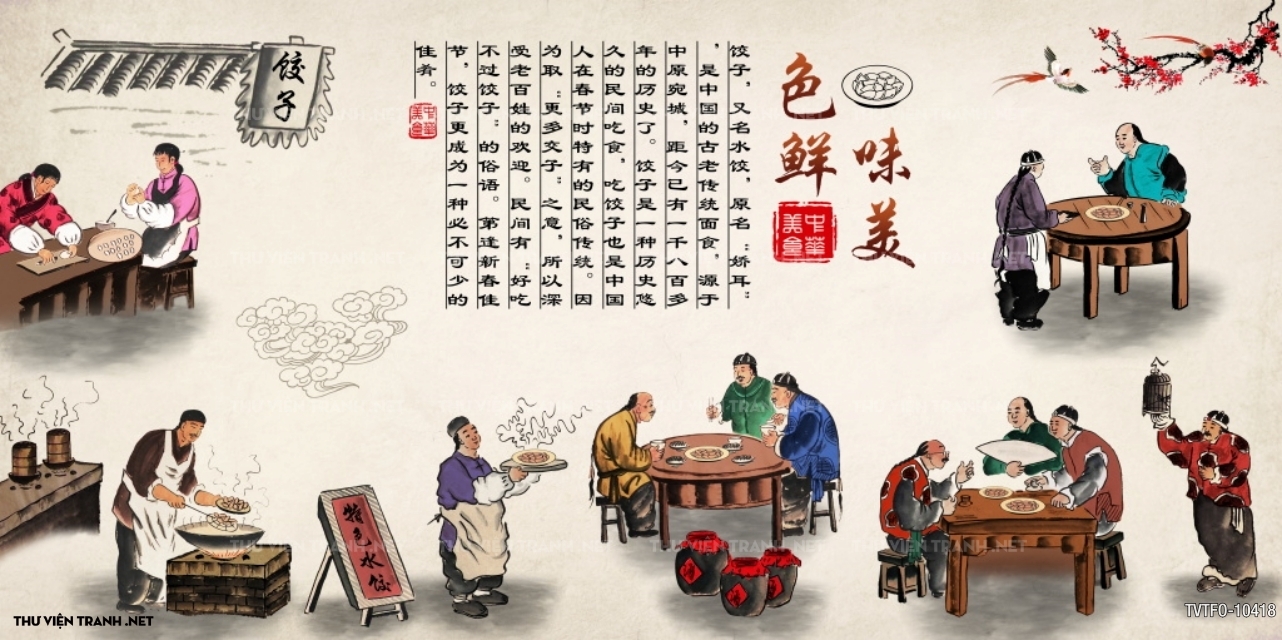 味美
色鲜
中华美食
饺子，又名水饺，原名“娇耳”
，是中国的古老传统面食，源于
中原宛城，距今已有一千八百多
年的历史了。饺子是一种历史悠
久的民间吃食，吃饺子也是中国
人在春节时特有的民俗传统。因
为取“更多交子”之意，所以深
受老百姓的欢迎。民间有“好吃
不过饺子”的俗语。第逢新春佳
节，饺子更成为一种必不可少的
佳肴。
中华美食
饺子
特色水饺
酒
酒
酒
THƯ VIỆN TRANH .NET
TVTFO-10418